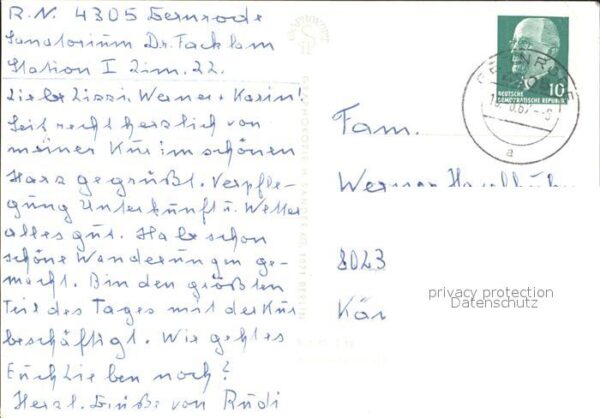 R.N. 4305 Gernrode
Sanatorium Dr. Facklam
Station I Zim. 22.
Liebe Lizzi, Werner + Karin!
Seit recht herzlich von
meiner Kur im schönen
Harz gegrüßt. Verpfle-
gung Unterkunft u. Wetter
alles gut. Habe schon
schöne Wanderungen ge-
macht. Bin den größten
Teil des Tages mit der Kur
beschäftigt. Wie geht es
Euch Lieben noch?
Herzl. Grüße von Rudi
10
DEUTSCHE
DEMOKRATISCHE REPUBLIK
GERNRODE
a
Fam.
Werner
8023
privacy protection
Datenschutz